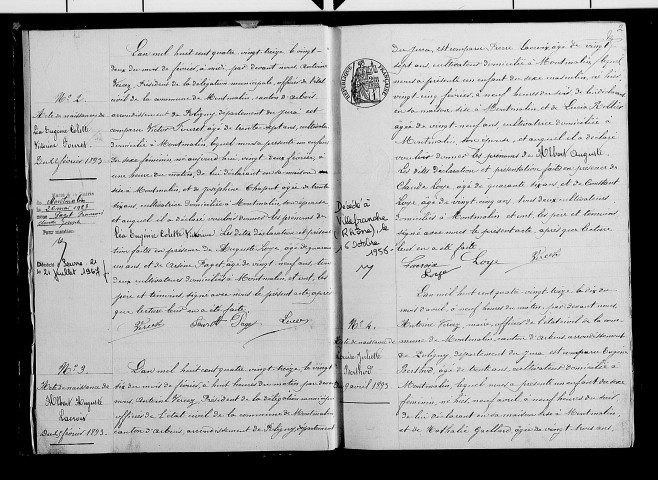 N° 2.
Acte de naissance de
Léa Eugénie Colette
Victorine Gouret
Du 22 février 1893.
Marié à
Montmalin
le 23 mai 1923
avec
Pour mention
Décédée à
21 juillet 1967
L'an mil huit cent quatre vingt-treize le vingt-
deux du mois de février, à midi, par devant nous Antoine
Vércz, Président de la délégation municipale, officier de l'état
civil de la commune de Montmalin, canton d'Arbois,
arrondissement de Poligny, département du Jura est
comparu Victor Gouret âgé de trente sept ans, cultivateur
domicilié à Montmalin, lequel nous a présenté un enfant
du sexe féminin né aujourd'hui vingt-deux février, à
une heure du matin, de lui déclarant en sa maison
sise à Montmalin, et de Joséphine Chapeut âgée de trente
six ans, cultivatrice domiciliée à Montmalin, son épouse
et auquel il a déclaré vouloir donner les prénoms de
Léa Eugénie Colette Victorine. Les dites déclaration et présen
tation faites en présence de Auguste Loye, âgé de quarante
un ans et de Arsène Faget, âgé de vingt-neuf ans, tous
deux cultivateurs domiciliés à Montmalin, et ont, les
père et témoins, signé avec nous le présent acte, après
que lecture leur en a été faite.
N° 3.
Acte de naissance de
Albert Auguste
Lacroix
Du 26 février 1893.
L'an mil huit cent quatre vingt-treize, le vingt
six du mois de février, à huit heures du matin par devant
nous, Antoine Vércz, Président de la délégation municipale
officier de l'état civil de la commune de Montmalin
canton d'Arbois, arrondissement de Poligny, département
RÉPUBLIQUE FRANÇAISE
Décédé à
Villefranche
(Rhône), le
16 Octobre
1956.
du Jura, est comparu Pierre Lacroix, âgé de vingt
sept ans, cultivateur domicilié à Montmalin, lequel
nous a présenté un enfant du sexe masculin, né hier,
vingt-cinq février, à neuf heures du soir de lui déclarant
en sa maison sise à Montmalin, et de Lucie Rollier
âgée de vingt-neuf ans, cultivatrice domiciliée à
Montmalin, son épouse, et auquel il a déclaré
vouloir donner les prénoms de Albert Auguste.
Les dites déclaration et présentation faites en présence de
Claude Loye, âgé de quarante six ans, et de Constant
Loye, âgé de vingt cinq ans, tous deux cultivateurs
domiciliés à Montmalin, et ont les père et témoins
signé avec nous le présent acte, après que lecture
leur en a été faite.
Lacroix Loye
Loye
N° 4.
Acte de naissance de
Louise Juliette
Berthod
Du 9 avril 1893.
L'an mil huit cent quatre vingt-treize le dix du
mois d'avril, à neuf heures du matin, par devant nous
Antoine Vércz, maire, officier de l'état civil de la com
mune de Montmalin, canton d'Arbois arrondissement
de Poligny, département du Jura, est comparu Eugène
Berthod, âgé de trente ans, cultivateur domicilié à
Montmalin, lequel nous a présenté un enfant du sexe
féminin, né hier, neuf avril, à neuf heures du soir
de lui déclarant en sa maison sise à Montmalin,
et de Nathalie Gaillard, âgée de vingt-trois ans,